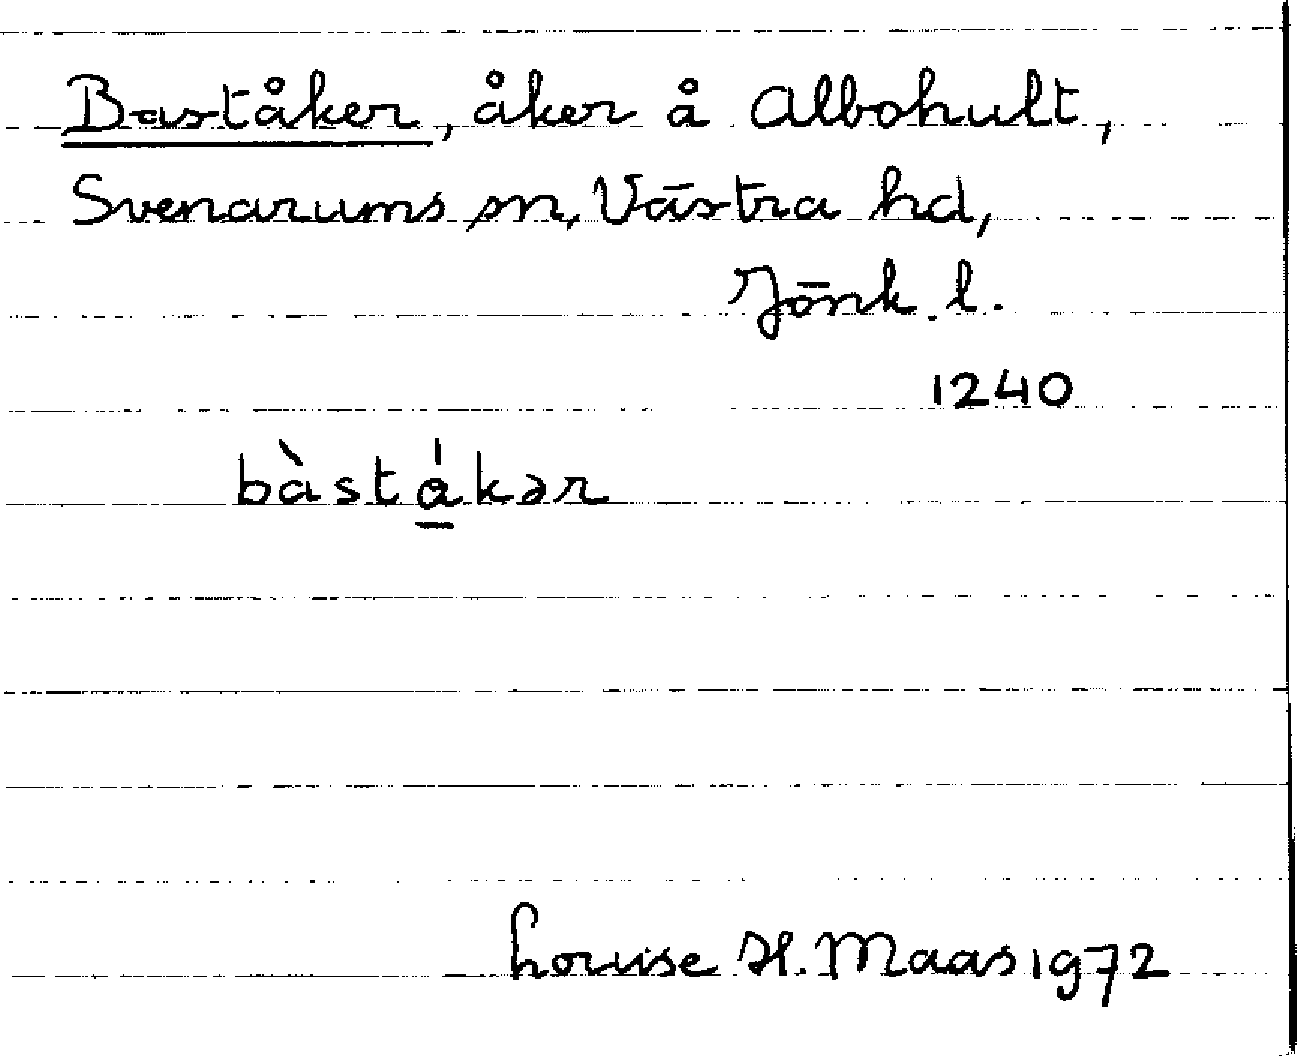 Baståker, åker å Albohult,
Svenarums sn, Västra hd,
Jönk. l.
1240
bàstákər
Louise H. Maas 1972